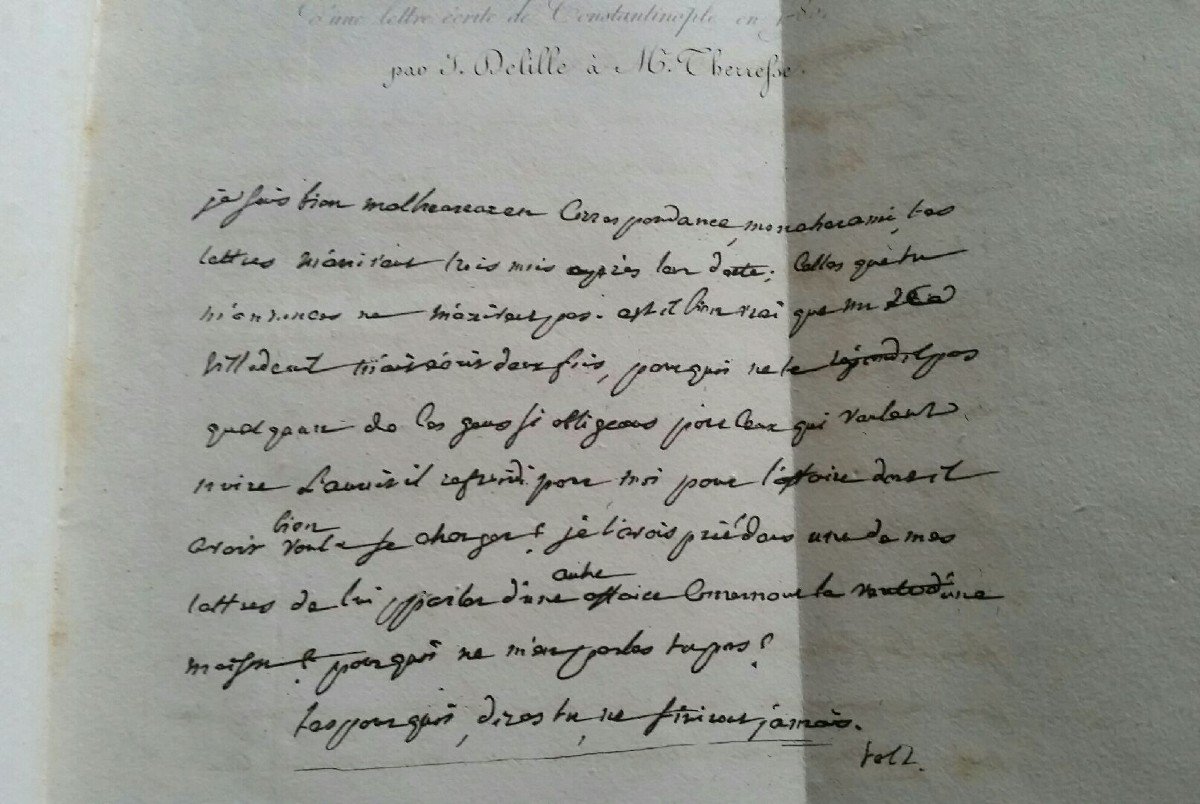 d'une lettre écrite de Constantinople en
par J. Delille à Mr. Therresse.
je suis bien malheureux en Correspondance, mon cher ami, tes
lettres m'arivent trois mois après leur date; Celles que tu
m'annonces ne m'arivent pas. est il bien vrai que mr
m'ait écrit deux fois, pourquoi ne te pas
quelqu'un de Ces gens si obligeans pour Ceux qui veulent
nuire L'auroit il refroidi pour moi pour l'affaire dont il
avoit bien voulu se charger? je t'avois prié dans une de mes
lettres de lui parler d'une autre affaire Concernant la vente d'une
maison? pourquoi ne m'en parles tu pas?
tes pourquoi, diras tu, ne finiront jamais.